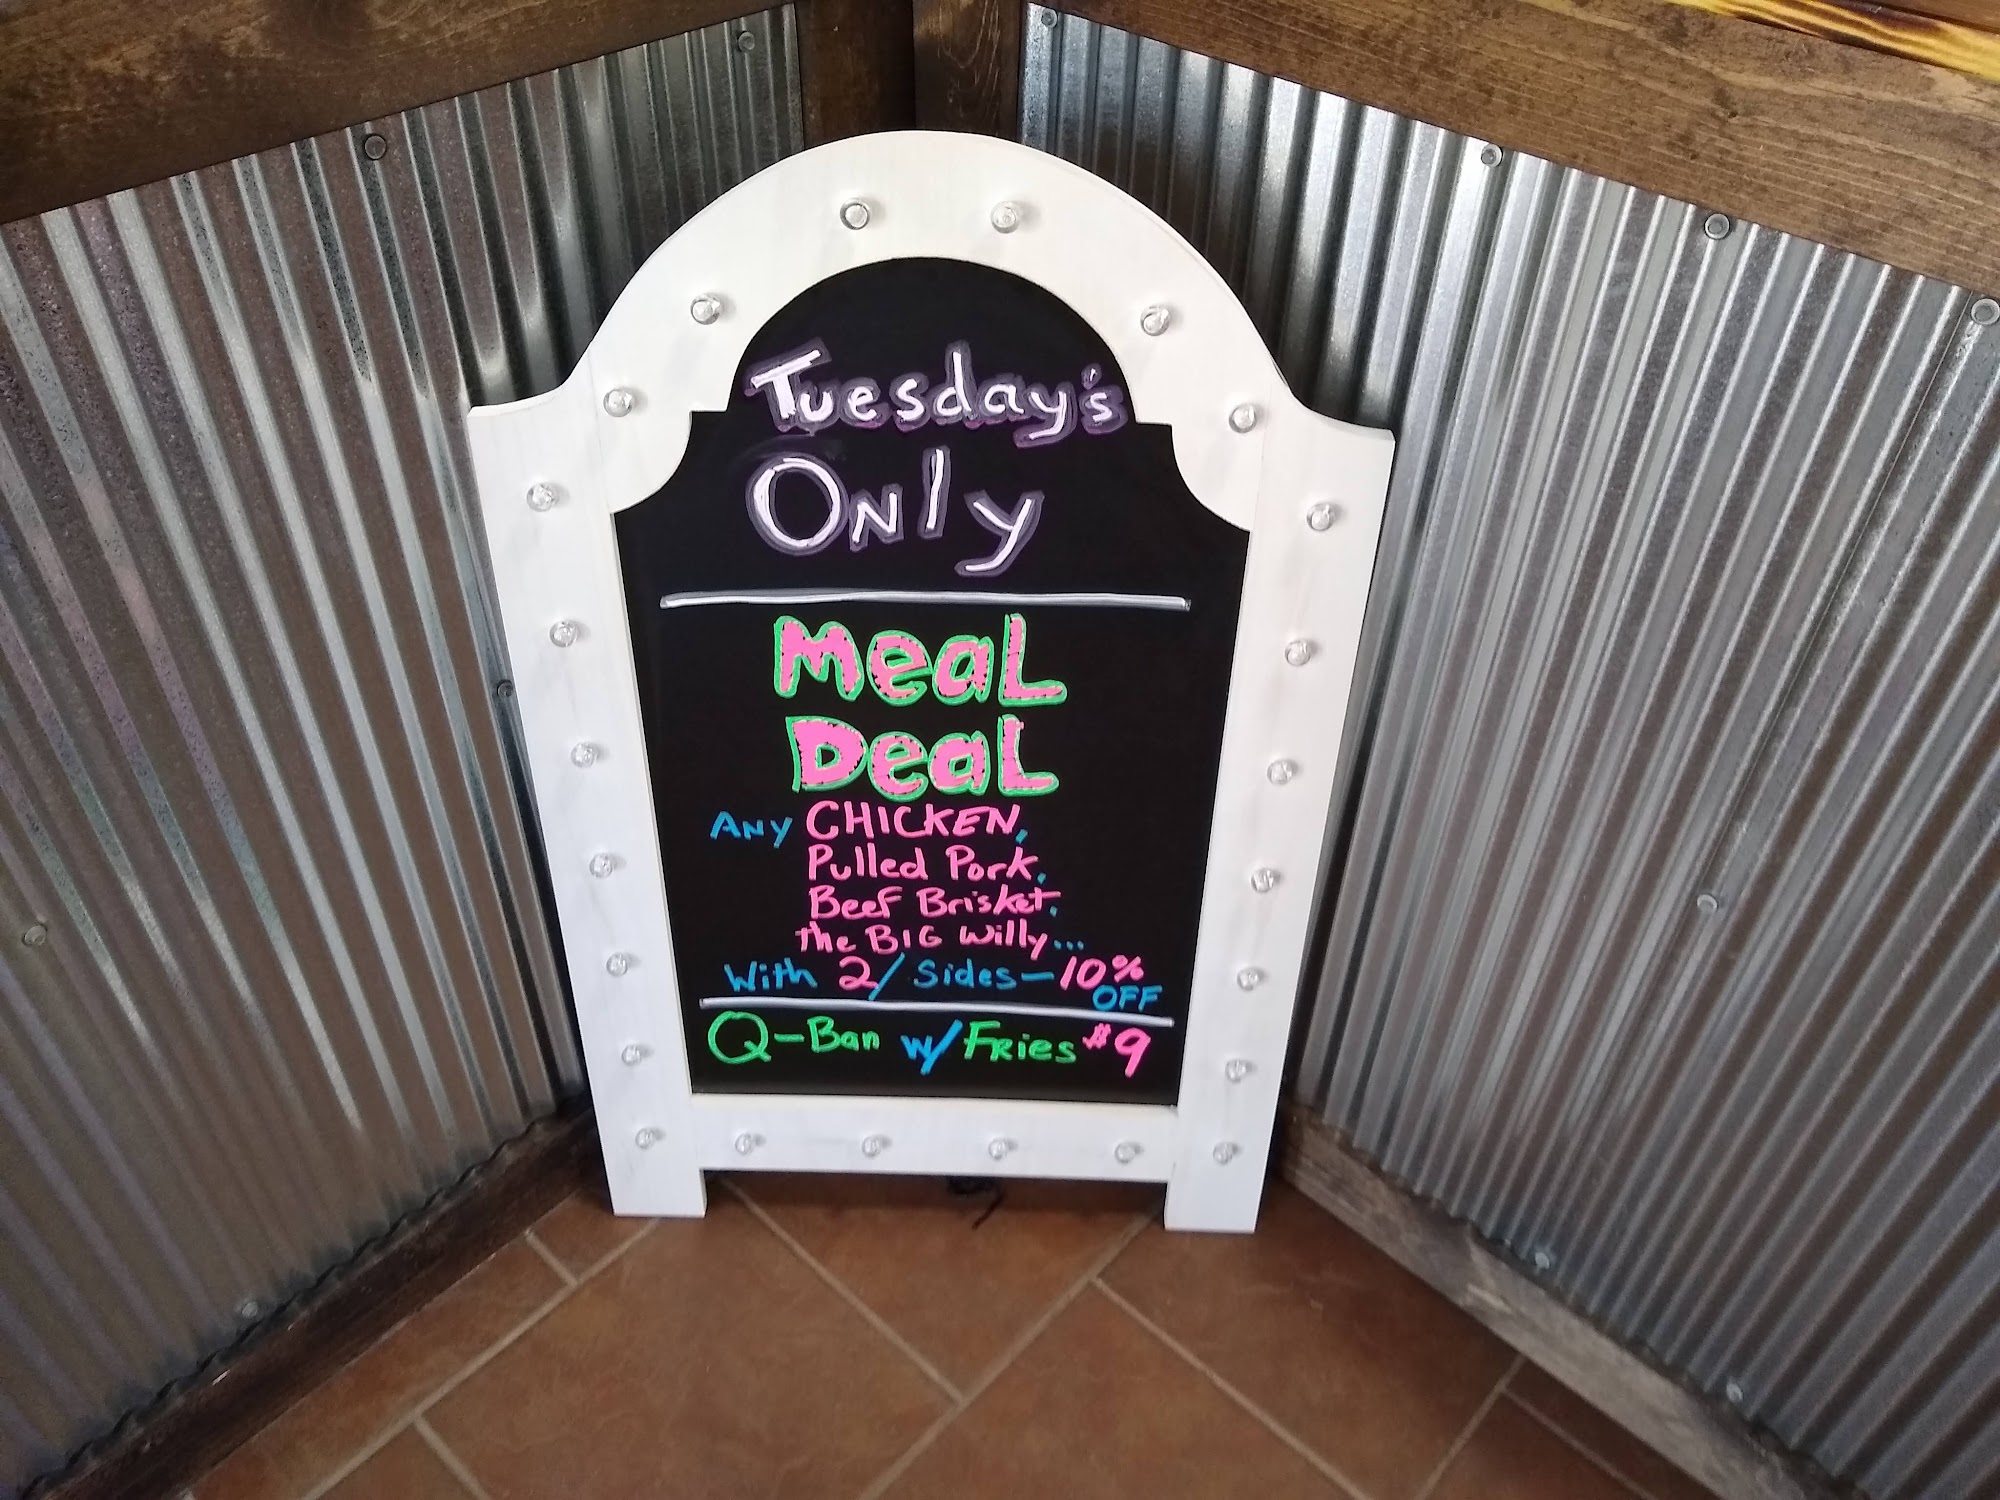 Tuesday's
Only
Meal
Deal
Any CHICKEN,
Pulled Pork,
Beef Brisket,
the BIG Willy...
With 2/ Sides - 10%
OFF
Q-Ban w/ Fries $9